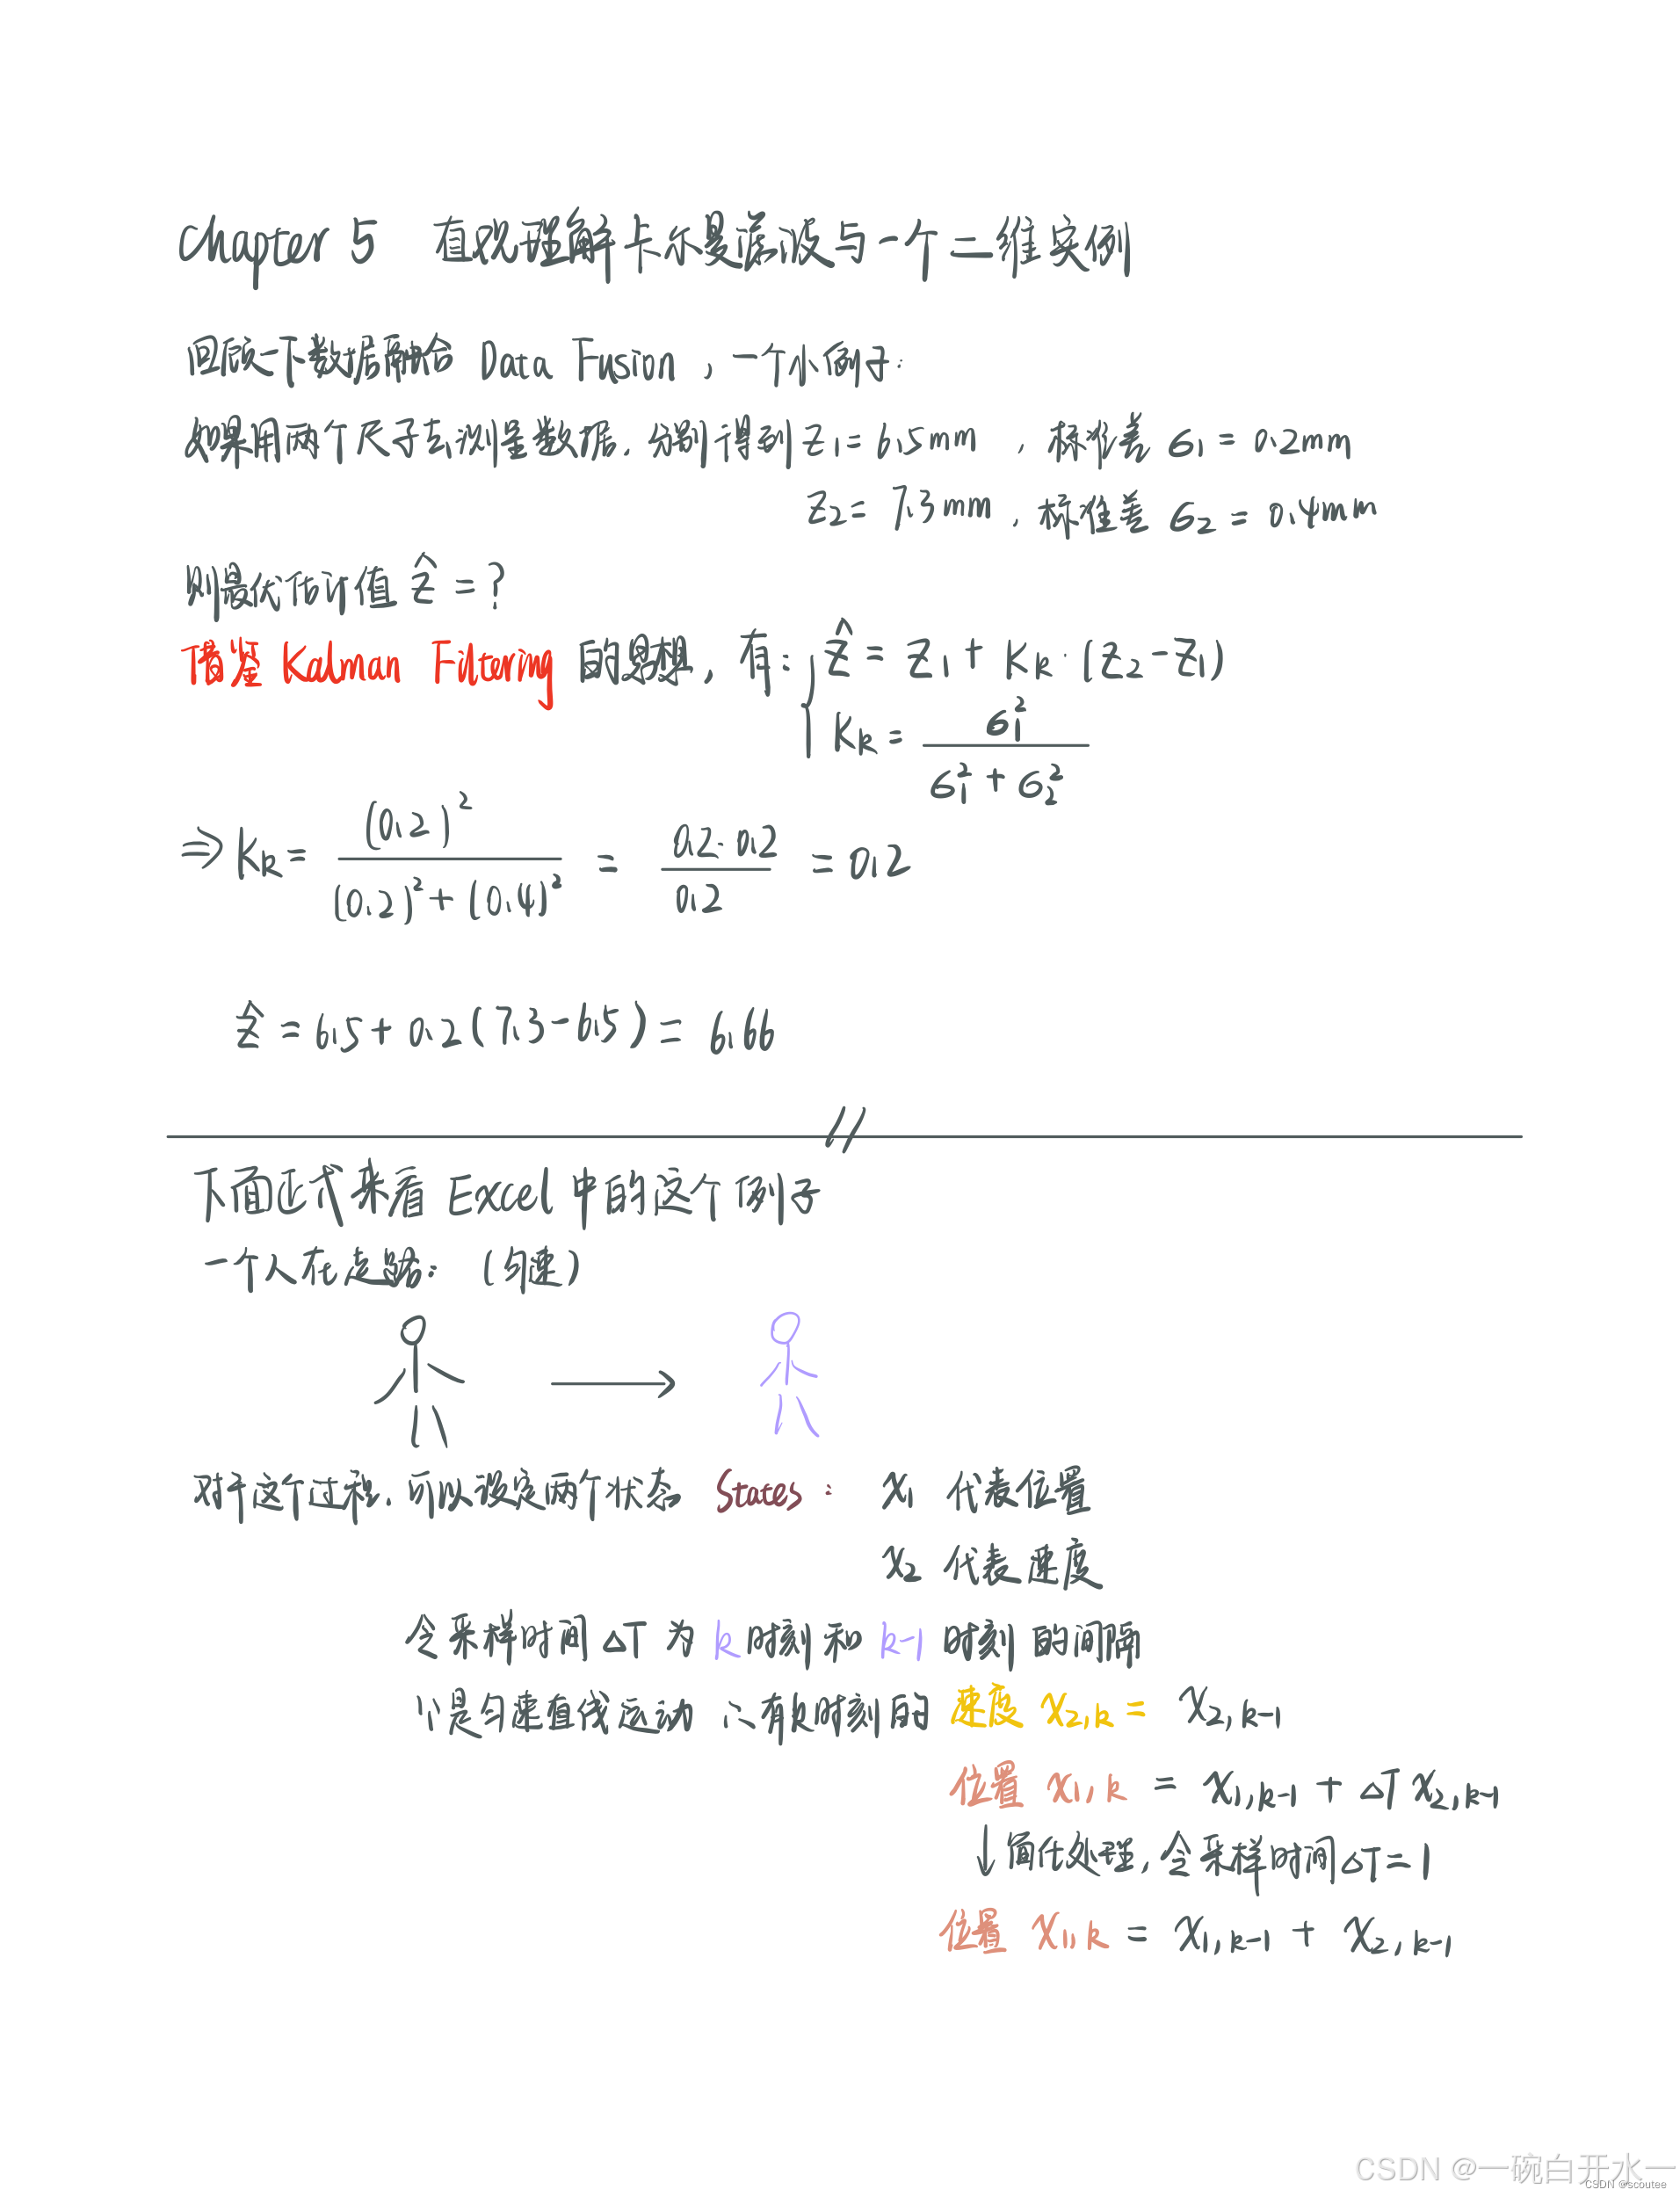 Chapter 5 直观理解卡尔曼滤波与一个二维实例
回顾一下数据融合 Data Fusion，一个小例子：
如果用两个尺子去测量数据，分别得到 z₁ = 6.5mm ，标准差 σ₁ = 0.2mm
z₂ = 7.3mm，标准差 σ₂ = 0.4mm
则最优估计值 ẑ = ？
借鉴 Kalman Filtering 的思想，有：{ ẑ = z₁ + Kk · (z₂ - z₁)
Kk = σ₁² / (σ₁² + σ₂²)
⇒ Kk = (0.2)² / ((0.2)² + (0.4)²) = 0.2·0.2 / 0.2 = 0.2
ẑ = 6.5 + 0.2(7.3 - 6.5) = 6.66
下面正式来看 Excel 中的这个例子
一个人在走路：（匀速）
对于这个过程，可以设定两个状态 States： x₁ 代表位置
x₂ 代表速度
令采样时间 ΔT 为 k 时刻和 k-1 时刻的间隔
∵是匀速直线运动 ∴有k时刻的 速度 x₂,k = x₂,k-1
位置 x₁,k = x₁,k-1 + ΔT x₂,k-1
↓简化处理，令采样时间ΔT=1
位置 x₁,k = x₁,k-1 + x₂,k-1
CSDN @一碗白开水一
CSDN @scoutee